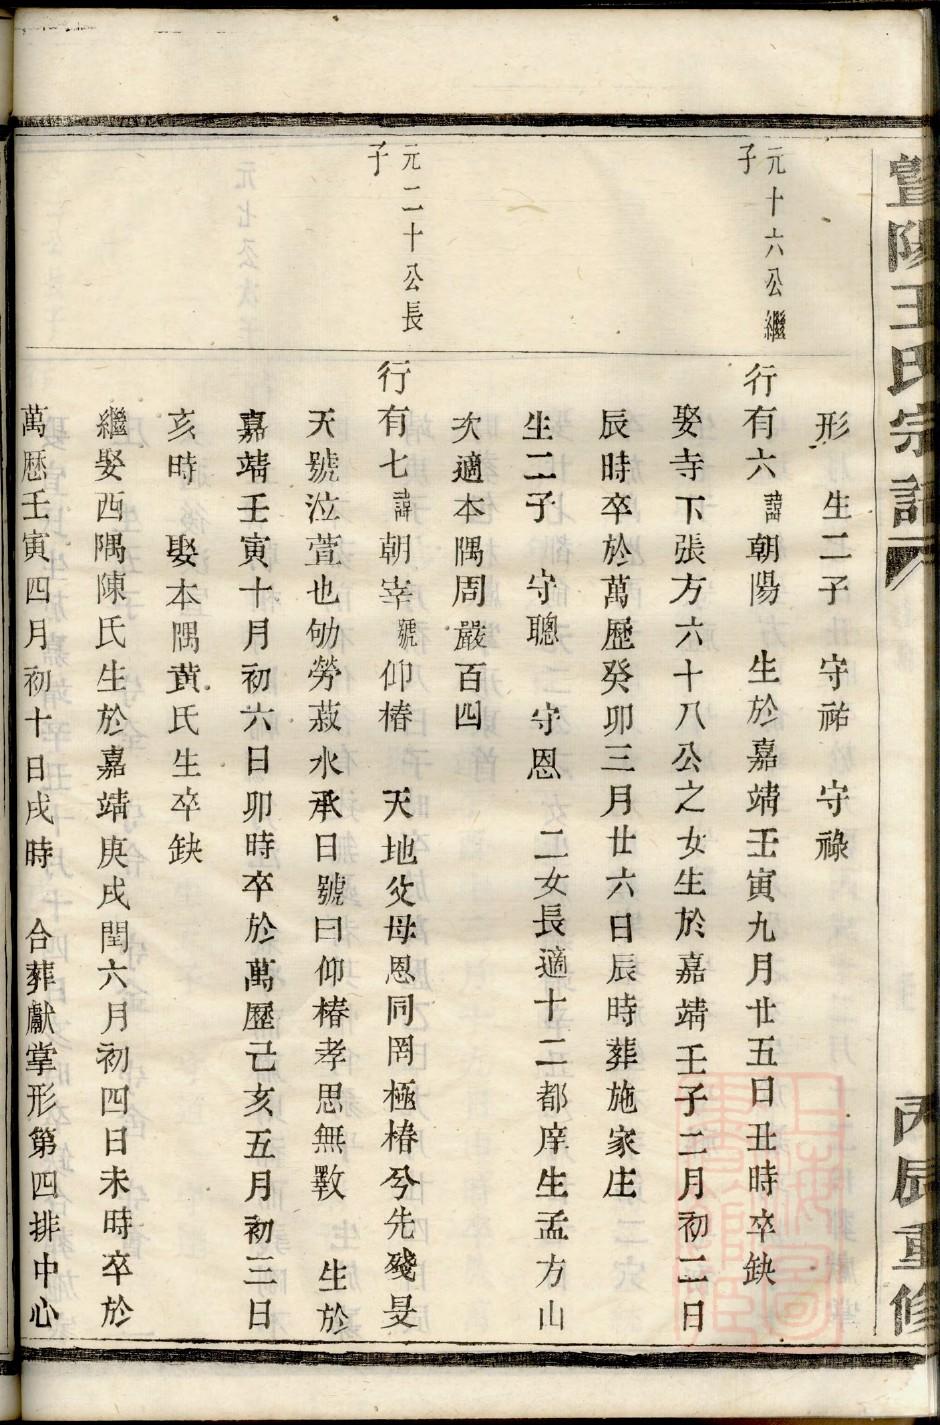 暨陽王氏宗譜
丙辰重修
形　生二子　守祐　守祿
元十六公繼
子
行有六諱朝陽　生於嘉靖壬寅九月廿五日丑時卒缺
娶寺下張方六十八公之女生於嘉靖壬子二月初二日
辰時卒於萬歷癸卯三月廿六日辰時葬施家庄
生二子　守聰　守恩　二女長適十二都庠生孟方山
次適本隅周嚴百四
元二十公長
子
行有七諱朝宰號仰椿　天地父母恩同罔極椿兮先殘旻
天號泣萱也劬勞菽水承日號曰仰椿孝思無斁　生於
嘉靖壬寅十月初六日卯時卒於萬歷己亥五月初三日
亥時　娶本隅黃氏生卒缺
繼娶西隅陳氏生於嘉靖庚戌閏六月初四日未時卒於
萬歷壬寅四月初十日戌時　合葬獻掌形第四排中心